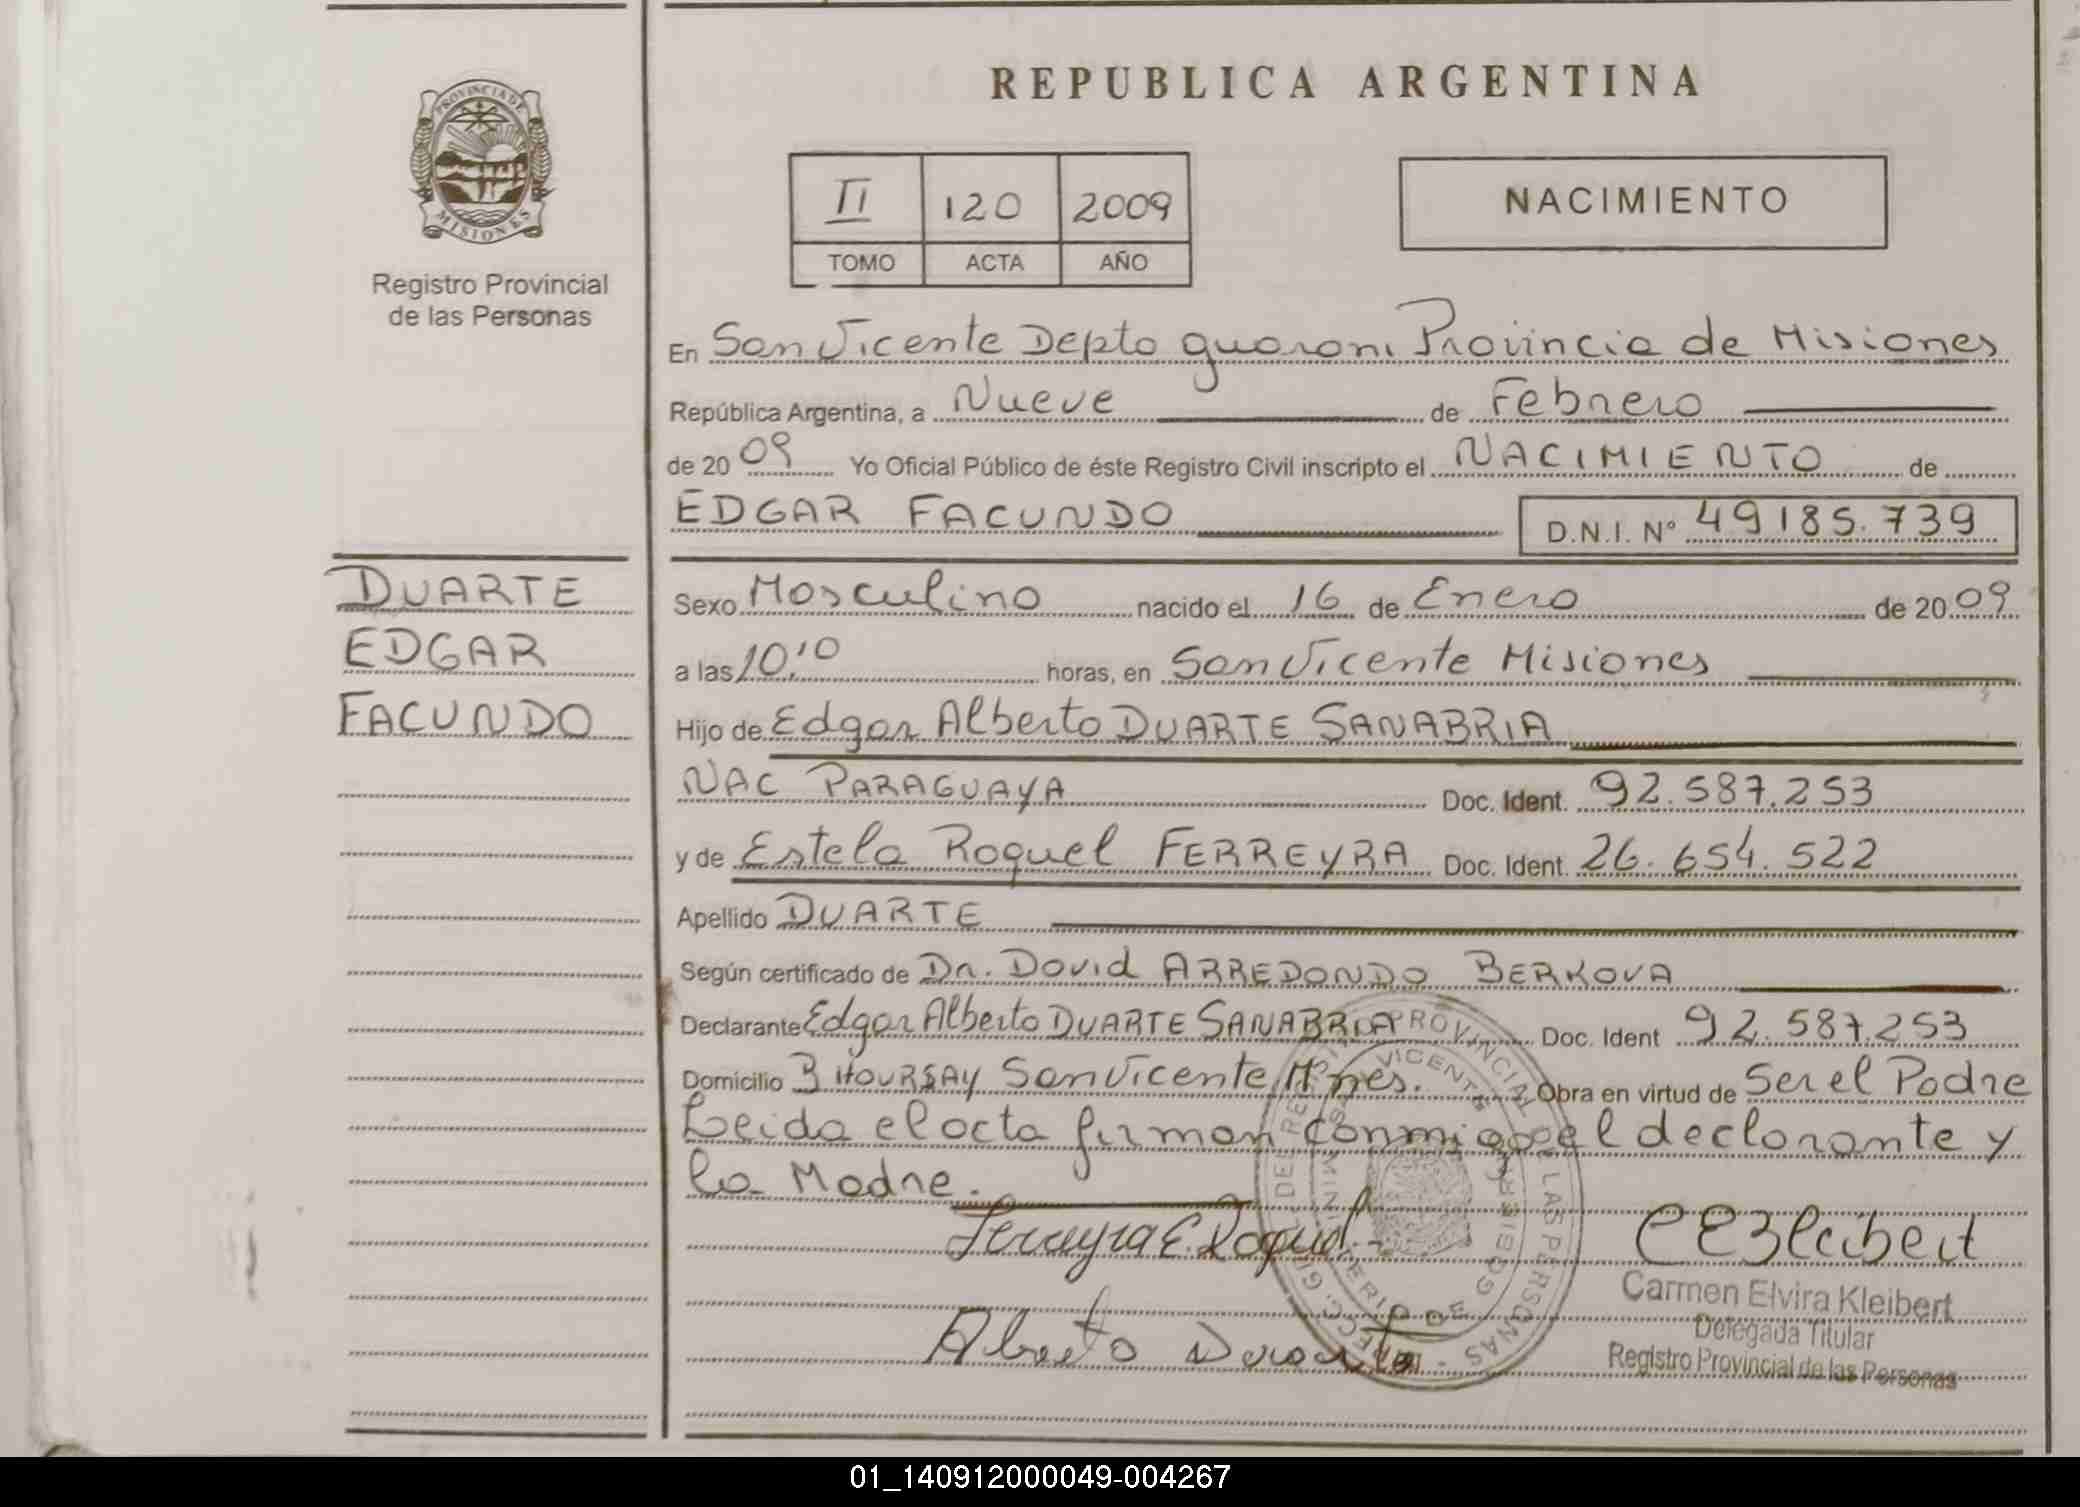 REPUBLICA ARGENTINA
PROVINCIA DE
MISIONES
Registro Provincial
de las Personas
II 120 2009
TOMO ACTA AÑO
NACIMIENTO
En San Vicente Depto guarani Provincia de Misiones
República Argentina, a Nueve de Febrero
de 2009 Yo Oficial Público de éste Registro Civil inscripto el NACIMIENTO de
EDGAR FACUNDO D.N.I. Nº 49185.739
DUARTE
EDGAR
FACUNDO
Sexo Masculino nacido el 16 de Enero de 2009
a las 10,10 horas, en San Vicente Misiones
Hijo de Edgar Alberto DUARTE SANABRIA
NAC PARAGUAYA Doc. Ident. 92.587.253
y de Estela Raquel FERREYRA Doc. Ident. 26.654.522
Apellido DUARTE
Según certificado de Dr. David ARREDONDO BERKOVA
Declarante Edgar Alberto DUARTE SANABRIA Doc. Ident 92.587.253
Domicilio San Vicente Mnes. Obra en virtud de Ser el Padre
Leida el acta firman conmigo el declarante y
la Madre.
Ferreyra E. Raquel
Alberto Duarte
PROVINCIAL DE LAS PERSONAS
SAN VICENTE
MINISTERIO DE GOBIERNO
Carmen Elvira Kleibert
Delegada Titular
Registro Provincial de las Personas
01_140912000049-004267